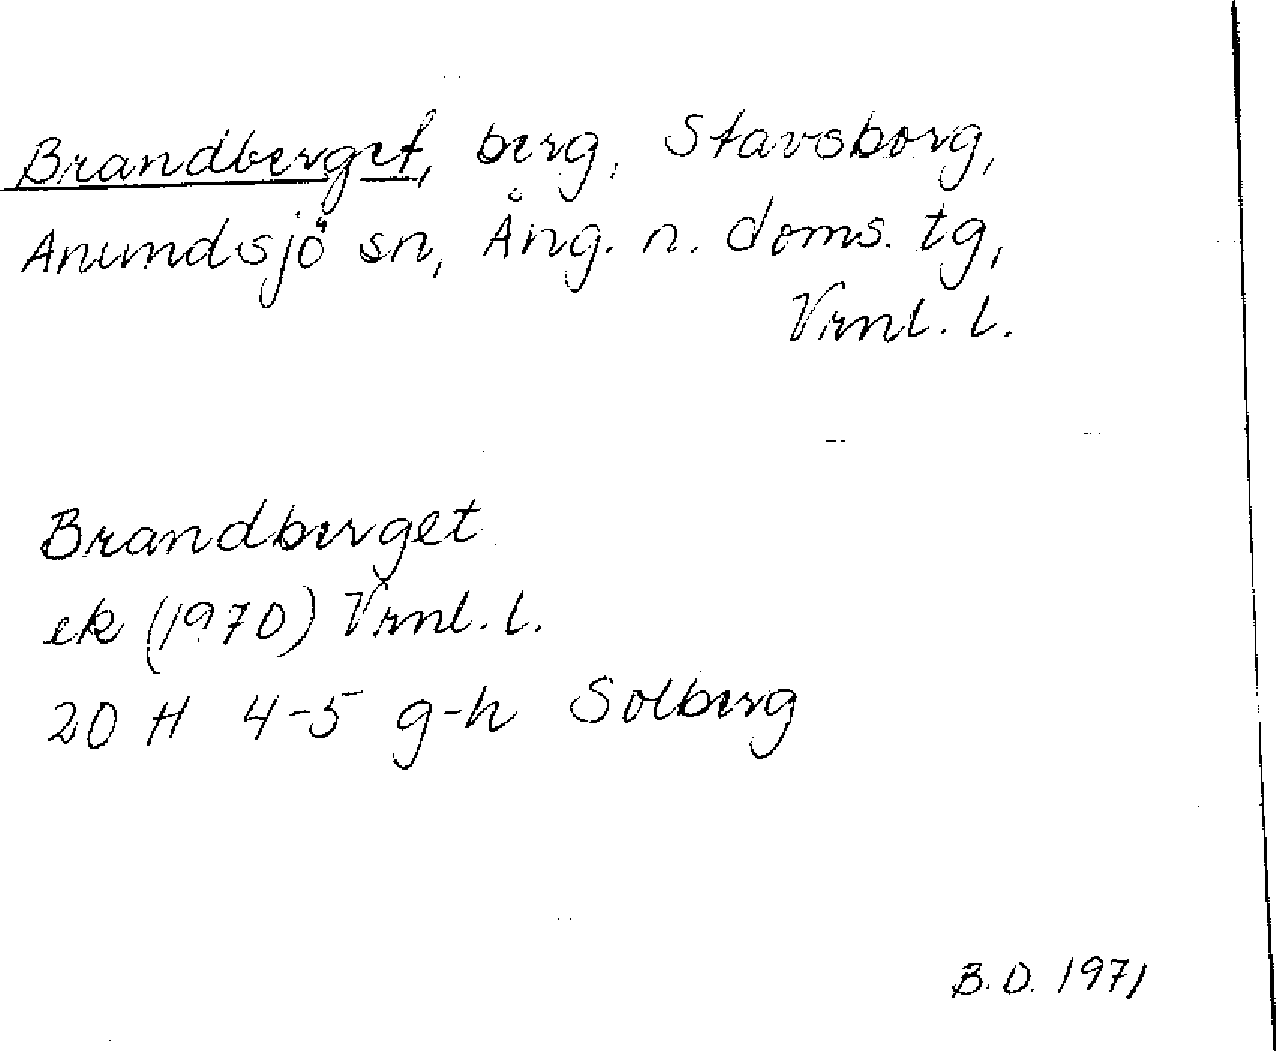 Brandberget, berg, Stavsborg,
Anundsjö sn, Ång. n. doms. tg,
Vrnl. l.
Brandberget
ek (1970) Vrnl. l.
20 H 4-5 g-h Solberg
B.D. 1971